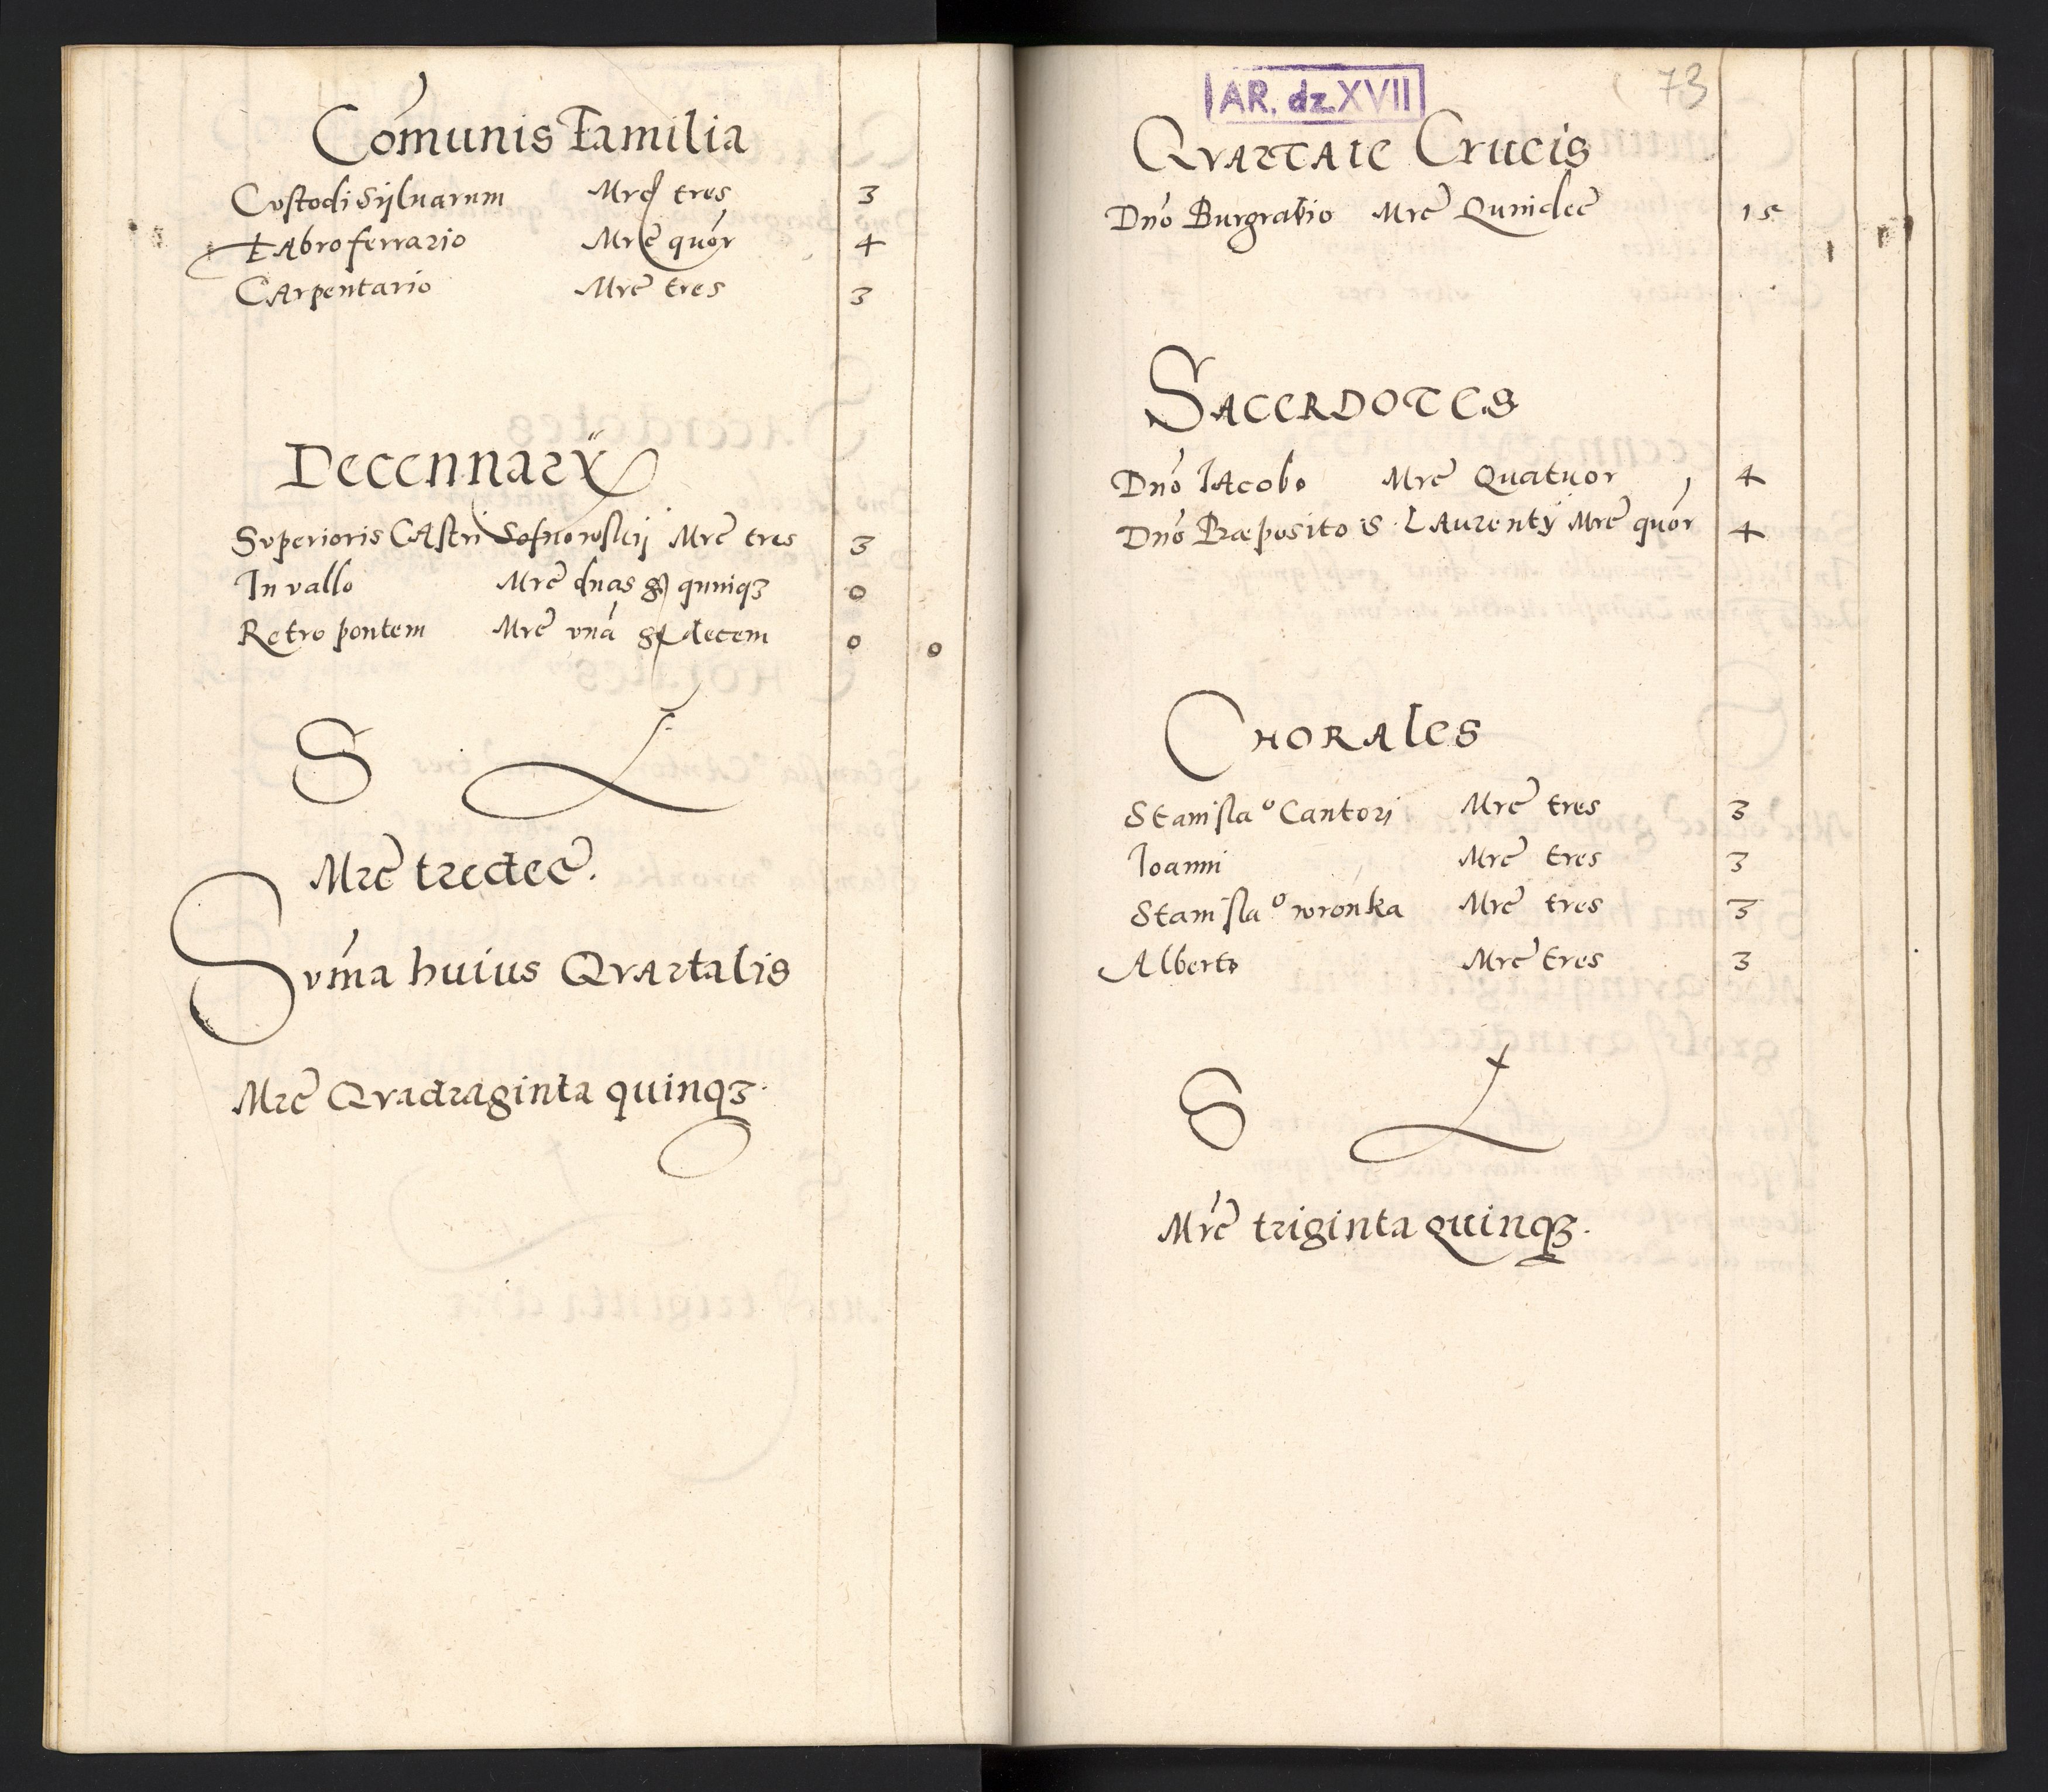 Cōmunis Familia
Custodi Sylvarum Mrē tres 3
Fabro ferrario Mrē quōr 4
Carpentario Mrē tres 3
Decennarÿ
Superioris Castri Mrē tres 3
In vallo Mrē duas g quinq3 0
Retro pontem Mrē unā g decem 0 0
S
Mrē tredecē.
Sum̄a huius Qvartalis
Mrē Qvadraginta quinq3.
AR. dz. XVII
73
Qvartale Crucis
Dn̄o Burgrabio Mrē Quindecē 15
Sacerdotes
Dn̄o Iacobo Mrē Quatuor 4
Dn̄o Præposito S. Laurentÿ Mrē quōr 4
Chorales
Stanisla⁰ Cantori Mrē tres 3
Ioanni Mrē tres 3
Stanisla⁰ wronka Mrē tres 3
Alberto Mrē tres 3
S
Mrē triginta quinq3.